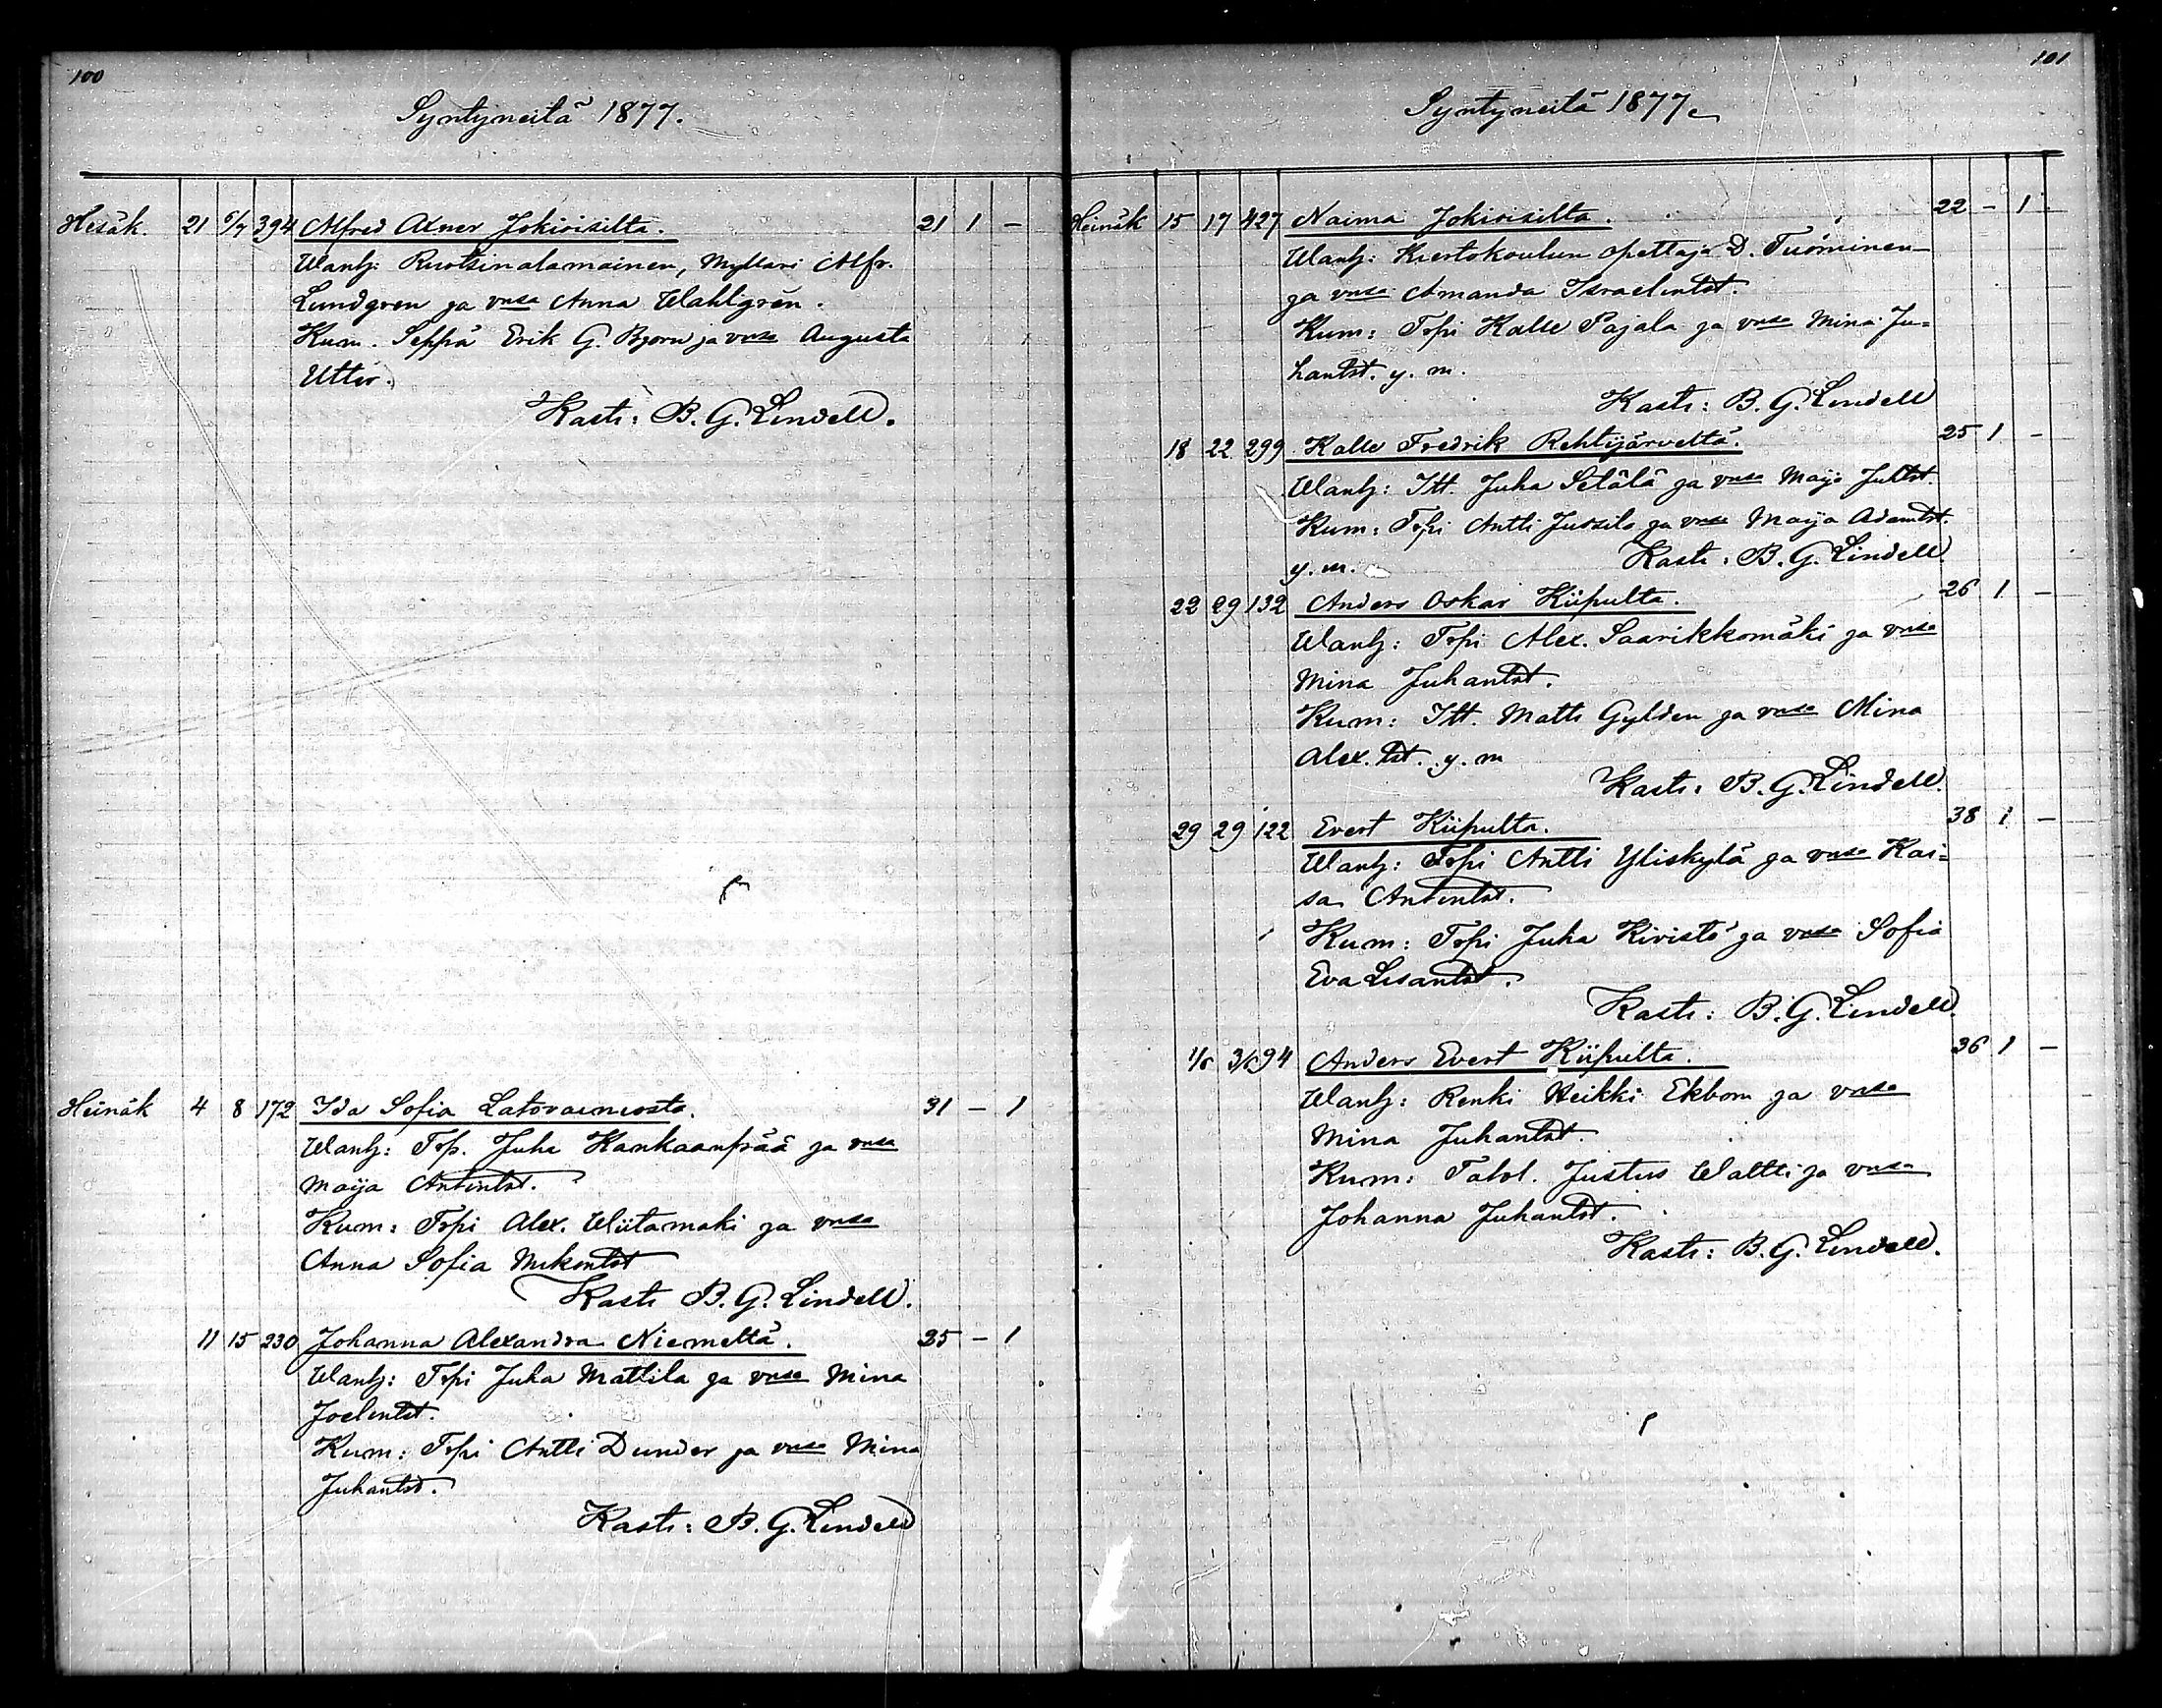 100
Syntyneitä 1877.
Kesäk. 21 6/7 394 Alfred Axner Jokioisilta. 21 1 -
Wanh: Ruotsinalamainen, Mylläri Alfr.
Lundgren ja vmsa Anna Wahlgrén.
Kum. Seppä Erik G. Bjorn ja vmsa Augusta
Utter.
Kasti: B. G. Lindell.
Heinäk 4 8 172 Ida Sofia Latovainiosta. 31 - 1
Wanh: Trp. Juha Kankaanpää ja vmsa
Maija Antintst.
Kum: Trpi Alex. Wiitamaki ja vmsa
Anna Sofia Mikontst
Kasti B. G. Lindell.
11 15 230 Johanna Alexandra Niemeltä. 35 - 1
Wanh: Trpi Juha Mattila ja vmsa Mina
Joelintst.
Kum: Trpi Antti Dunder ja vmsa Mina
Juhantst.
Kasti: B. G. Lindell
101
Syntyneitä 1877
Heinäk 15 17 427 Naima Jokioisilta. 22 - 1
Wanh: Kiertokoulun opettaja D. Tuominen
ja vmsa Amanda Israelintst.
Kum: Trpi Kalle Pajala ja vmsa Mina Ju=
hantst. y. m.
Kasti: B. G. Lindell
18 22 299 Kalle Fredrik Rehtijärveltä. 25 1 -
Wanh: Itt. Juha Setälä ja vmsa Maija Juhtst.
Kum: Trpi Antti Jussila ja vmsa Maija Adamtst.
y. m. Kasti: B. G. Lindell
22 29 132 Anders Oskar Kiipulta. 26 1 -
Wanh: Trpi Alex. Saarikkomäki ja vmsa
Mina Juhantst.
Kum: Itt. Matti Gylden ja vmsa Mina
Alex.tst. y. m
Kasti: B. G. Lindell.
29 29 122 Evert Kiipulta. 38 1 -
Wanh: Trpi Antti Yliskylä ja vmsa Kai=
sa Antintst.
Kum: Trpi Juha Kivistö ja vmsa Sofia
Eva Lisantst.
Kasti: B. G. Lindell.
1/8 3/8 94 Anders Evert Kiipulta. 36 1 -
Wanh: Renki Heikki Ekbom ja vmsa
Mina Juhantst.
Kum: Talol. Justus Waltti ja vmsa
Johanna Juhantst.
Kasti: B. G. Lindell.